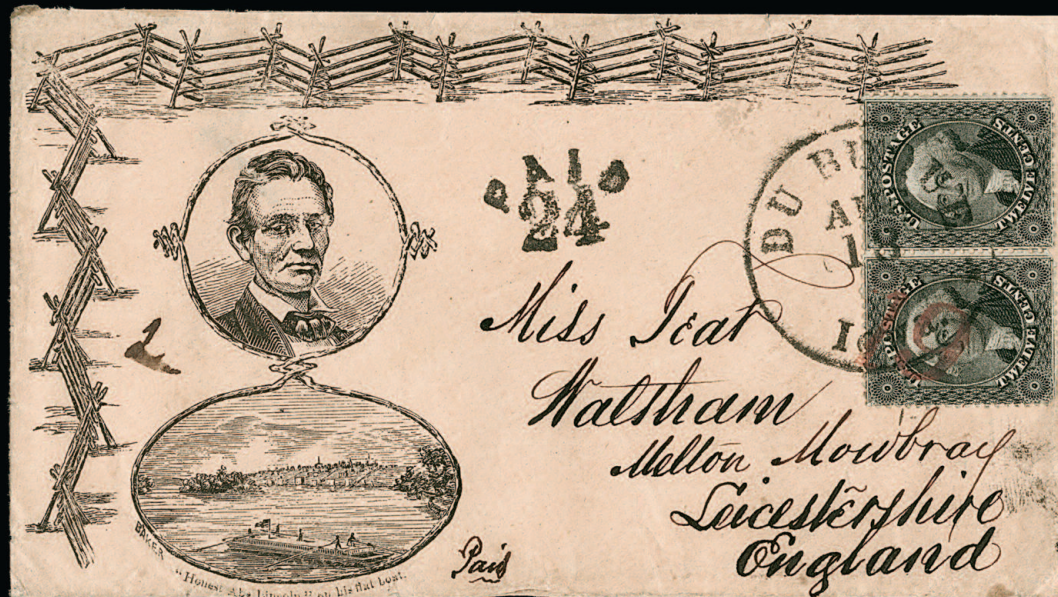 PAID
24
DU BU
18
Io
U.S. POSTAGE
TWELVE CENTS
U.S. POSTAGE
TWELVE CENTS
Miss
Waltham
Melton Mowbray
Leicestershire
England
Paid
"Honest Abe Lincoln" on his flat boat.